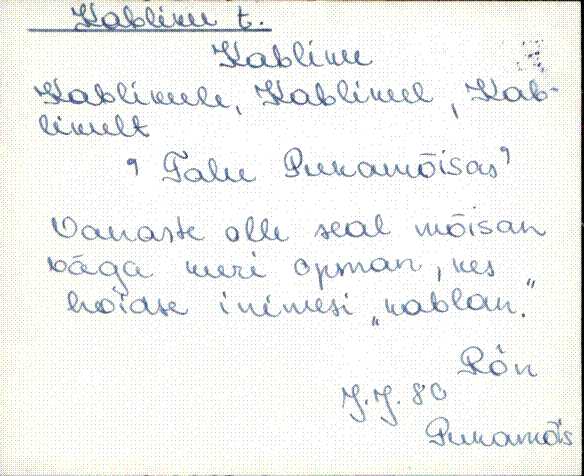 Kablinu t.
Kablinu
Kablinule, Kablinul, Kab-
linult
' Talu Puramõisas'
Vanaste olle seal mõisan
väga kuri opman, kes
hoidse inimesi „kablan."
Rõn
J.J. 80